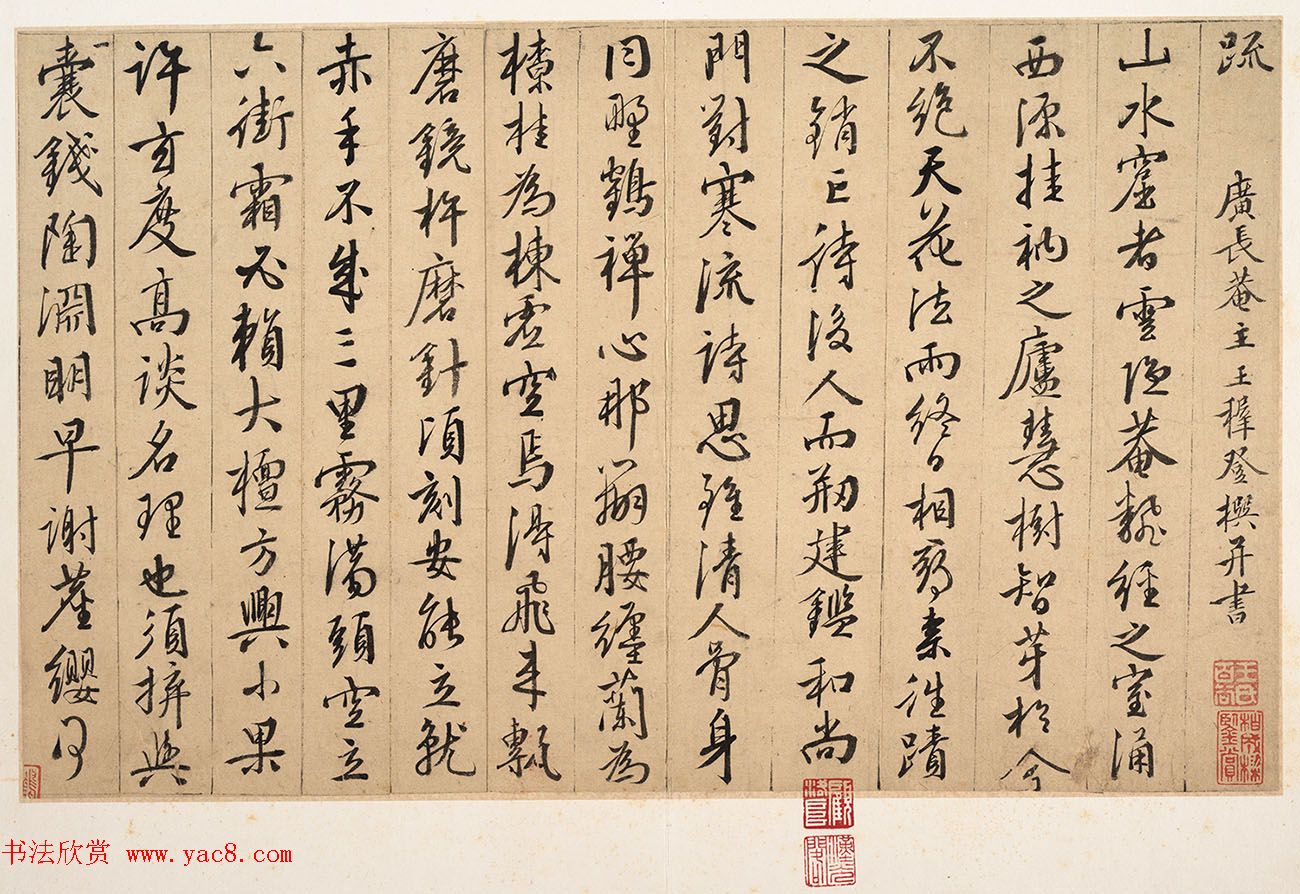 疏 廣長菴主王穉登撰并書
山水窟者雲隱菴翻經之室涌
西源挂衲之廬慧樹智芽於今
不絕天花法雨終日相柰往蹟
之銷亡待後人而剏建鑑和尚
門對寒流詩思雖清人骨身
同野鶴禪心那腰纏蘭為
橑桂為棟虛空焉得飛來甎
磨鏡杵磨針頃刻安能立就
赤手不成三里霧滿頭空立
六街霜必賴大檀方興小果
許玄度高談名理也須拚與
一囊錢陶淵明早謝簪纓何
书法欣赏 www.yac8.com